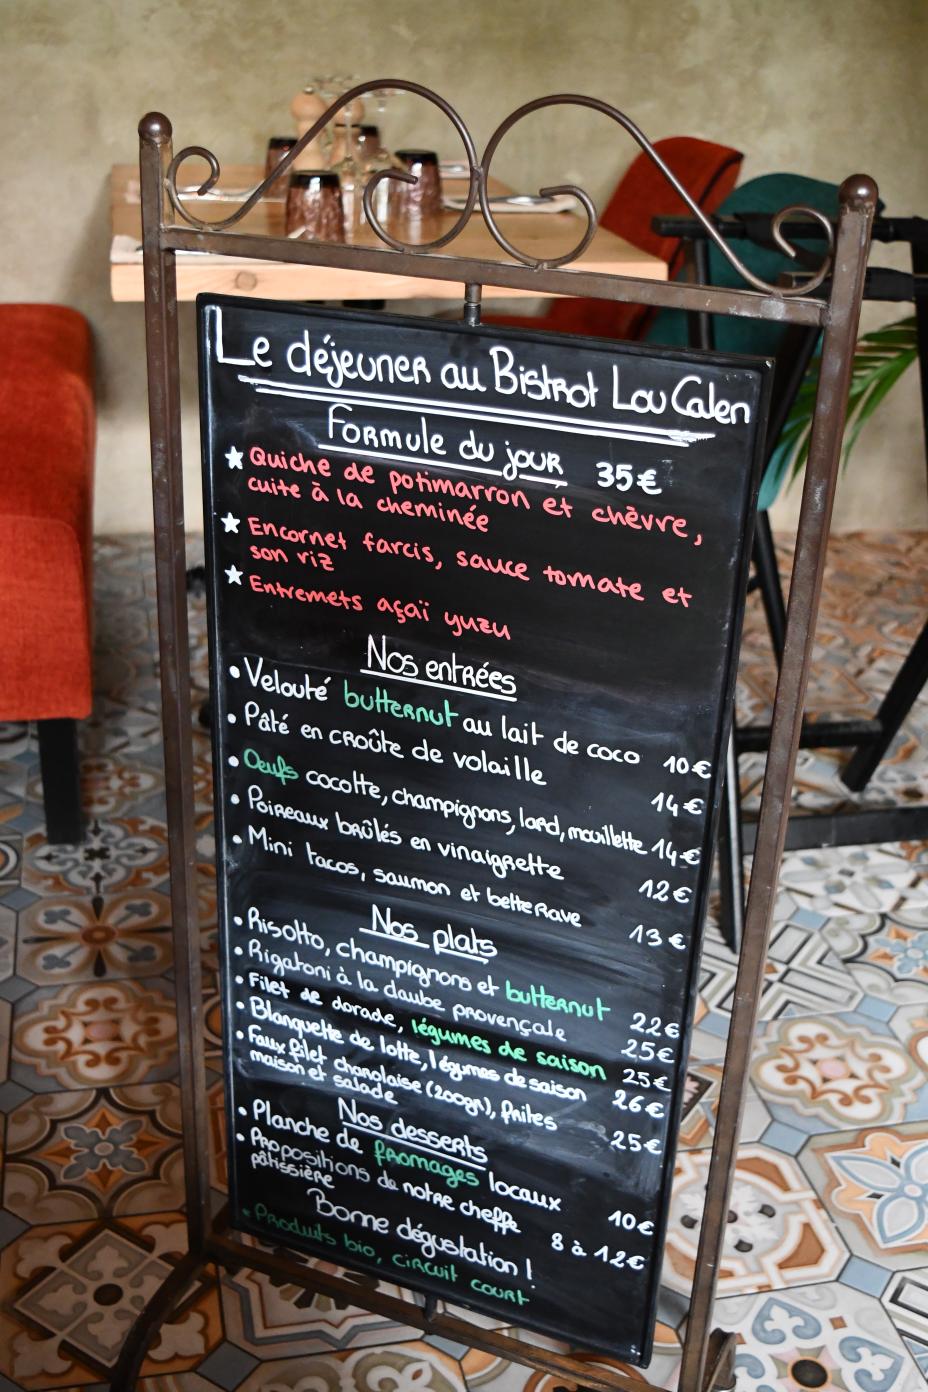 Le déjeuner au Bistrot Lou Calen
Formule du jour 35€
★ Quiche de potimarron et chèvre,
cuite à la cheminée
★ Encornet farcis, sauce tomate et
son riz
★ Entremets açaï yuzu
Nos entrées
• Velouté butternut au lait de coco 10€
• Pâté en croûte de volaille 14€
• Oeufs cocotte, champignons, lard, mouillette 14€
• Poireaux brûlés en vinaigrette 12€
• Mini tacos, saumon et betterave 13€
Nos plats
• Risotto, champignons et butternut 22€
• Rigatoni à la daube provençale 25€
• Filet de dorade, légumes de saison 25€
• Blanquette de lotte, légumes de saison 26€
• Faux filet charolaise (200gr), frites 25€
maison et salade
Nos desserts
• Planche de fromages locaux 10€
• Propositions de notre cheffe 8 à 12€
pâtissière
Bonne dégustation !
* Produits bio, circuit court